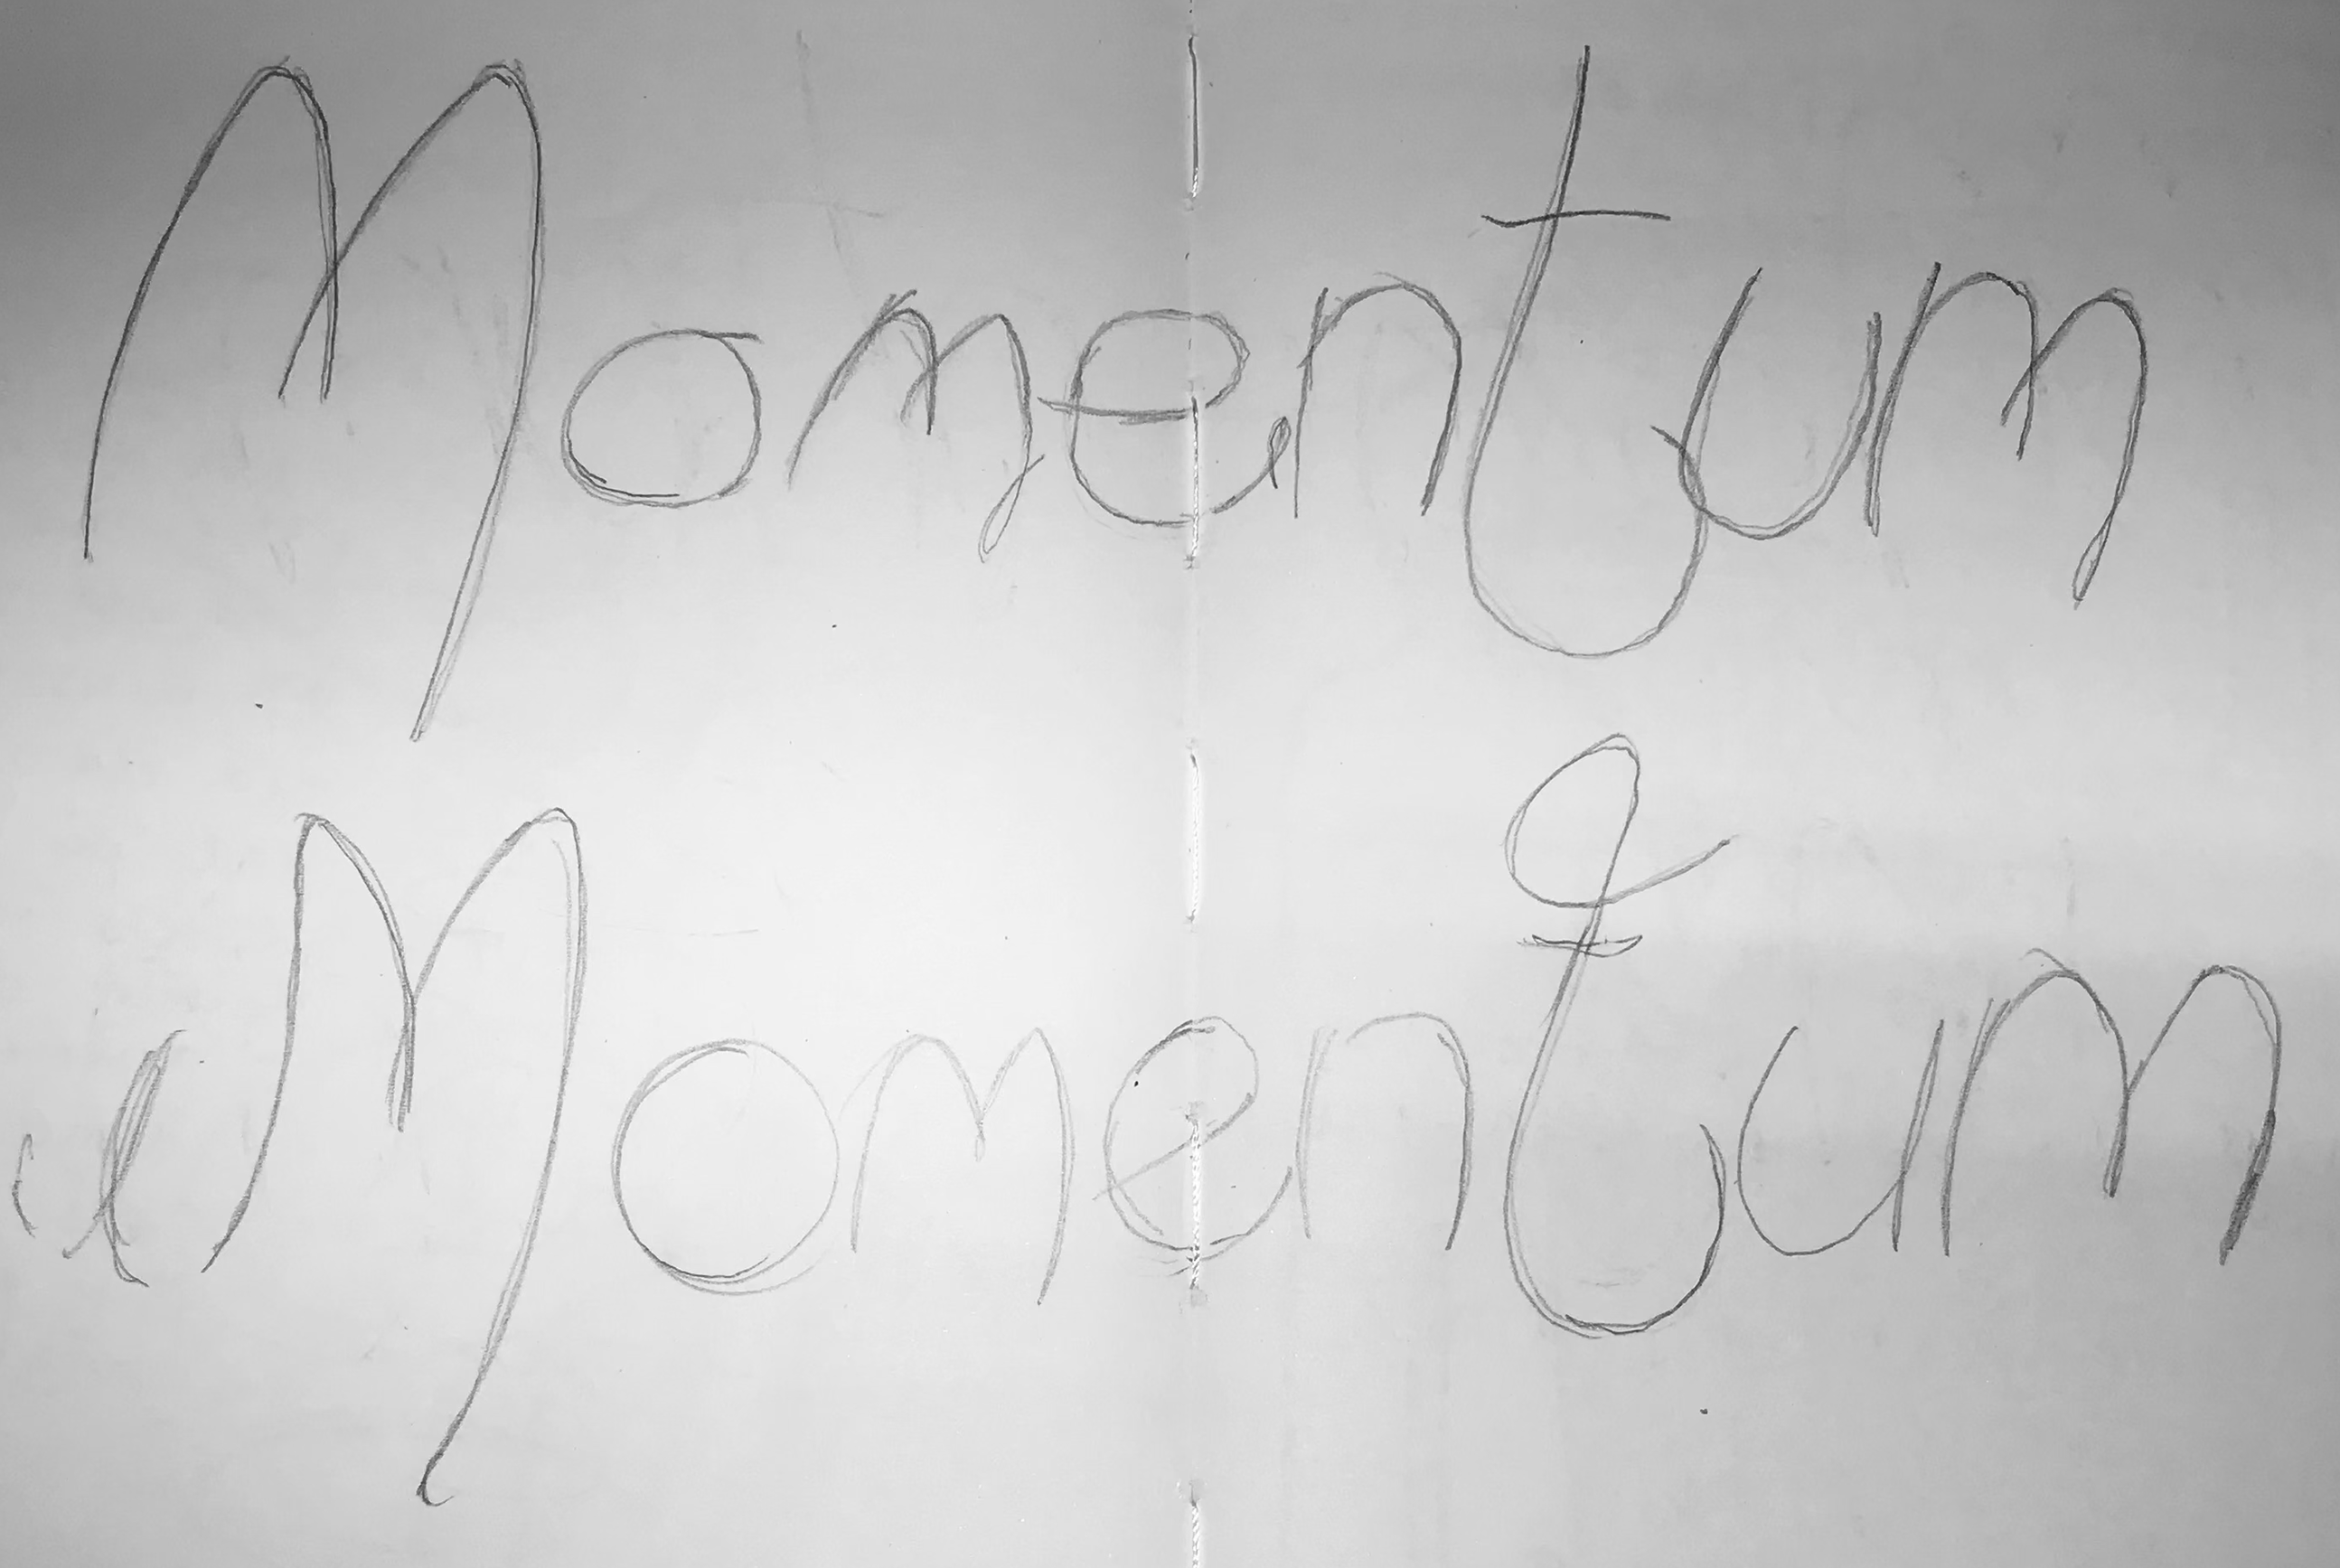 Momentum
Momentum